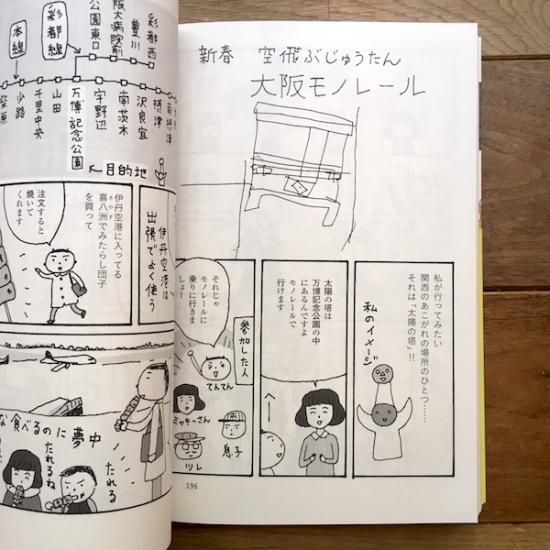 新春 空飛ぶじゅうたん
大阪モノレール
私が行ってみたい
関西のあこがれの場所のひとつ……
それは「太陽の塔」!!
私のイメージ
太陽の塔は
万博記念公園の中
にあるんですよ
モノレールで
行けます
へー
それじゃ
モノレールに
乗りに行きま
しょー
参加した人
てんてん
ミッキーさん
ツレ
息子
196
本線
彩都線
彩都西
豊川
阪大病院前
公園東口
南摂津
摂津
沢良宜
南茨木
宇野辺
万博記念公園
山田
千里中央
少路
柴原
←目的地
伊丹空港は
出張でよく使う
伊丹空港に入ってる
喜八洲でみたらし団子
きやす
を買って
注文すると
焼いて
くれます
な食べるのに夢中
たれるね
たれる